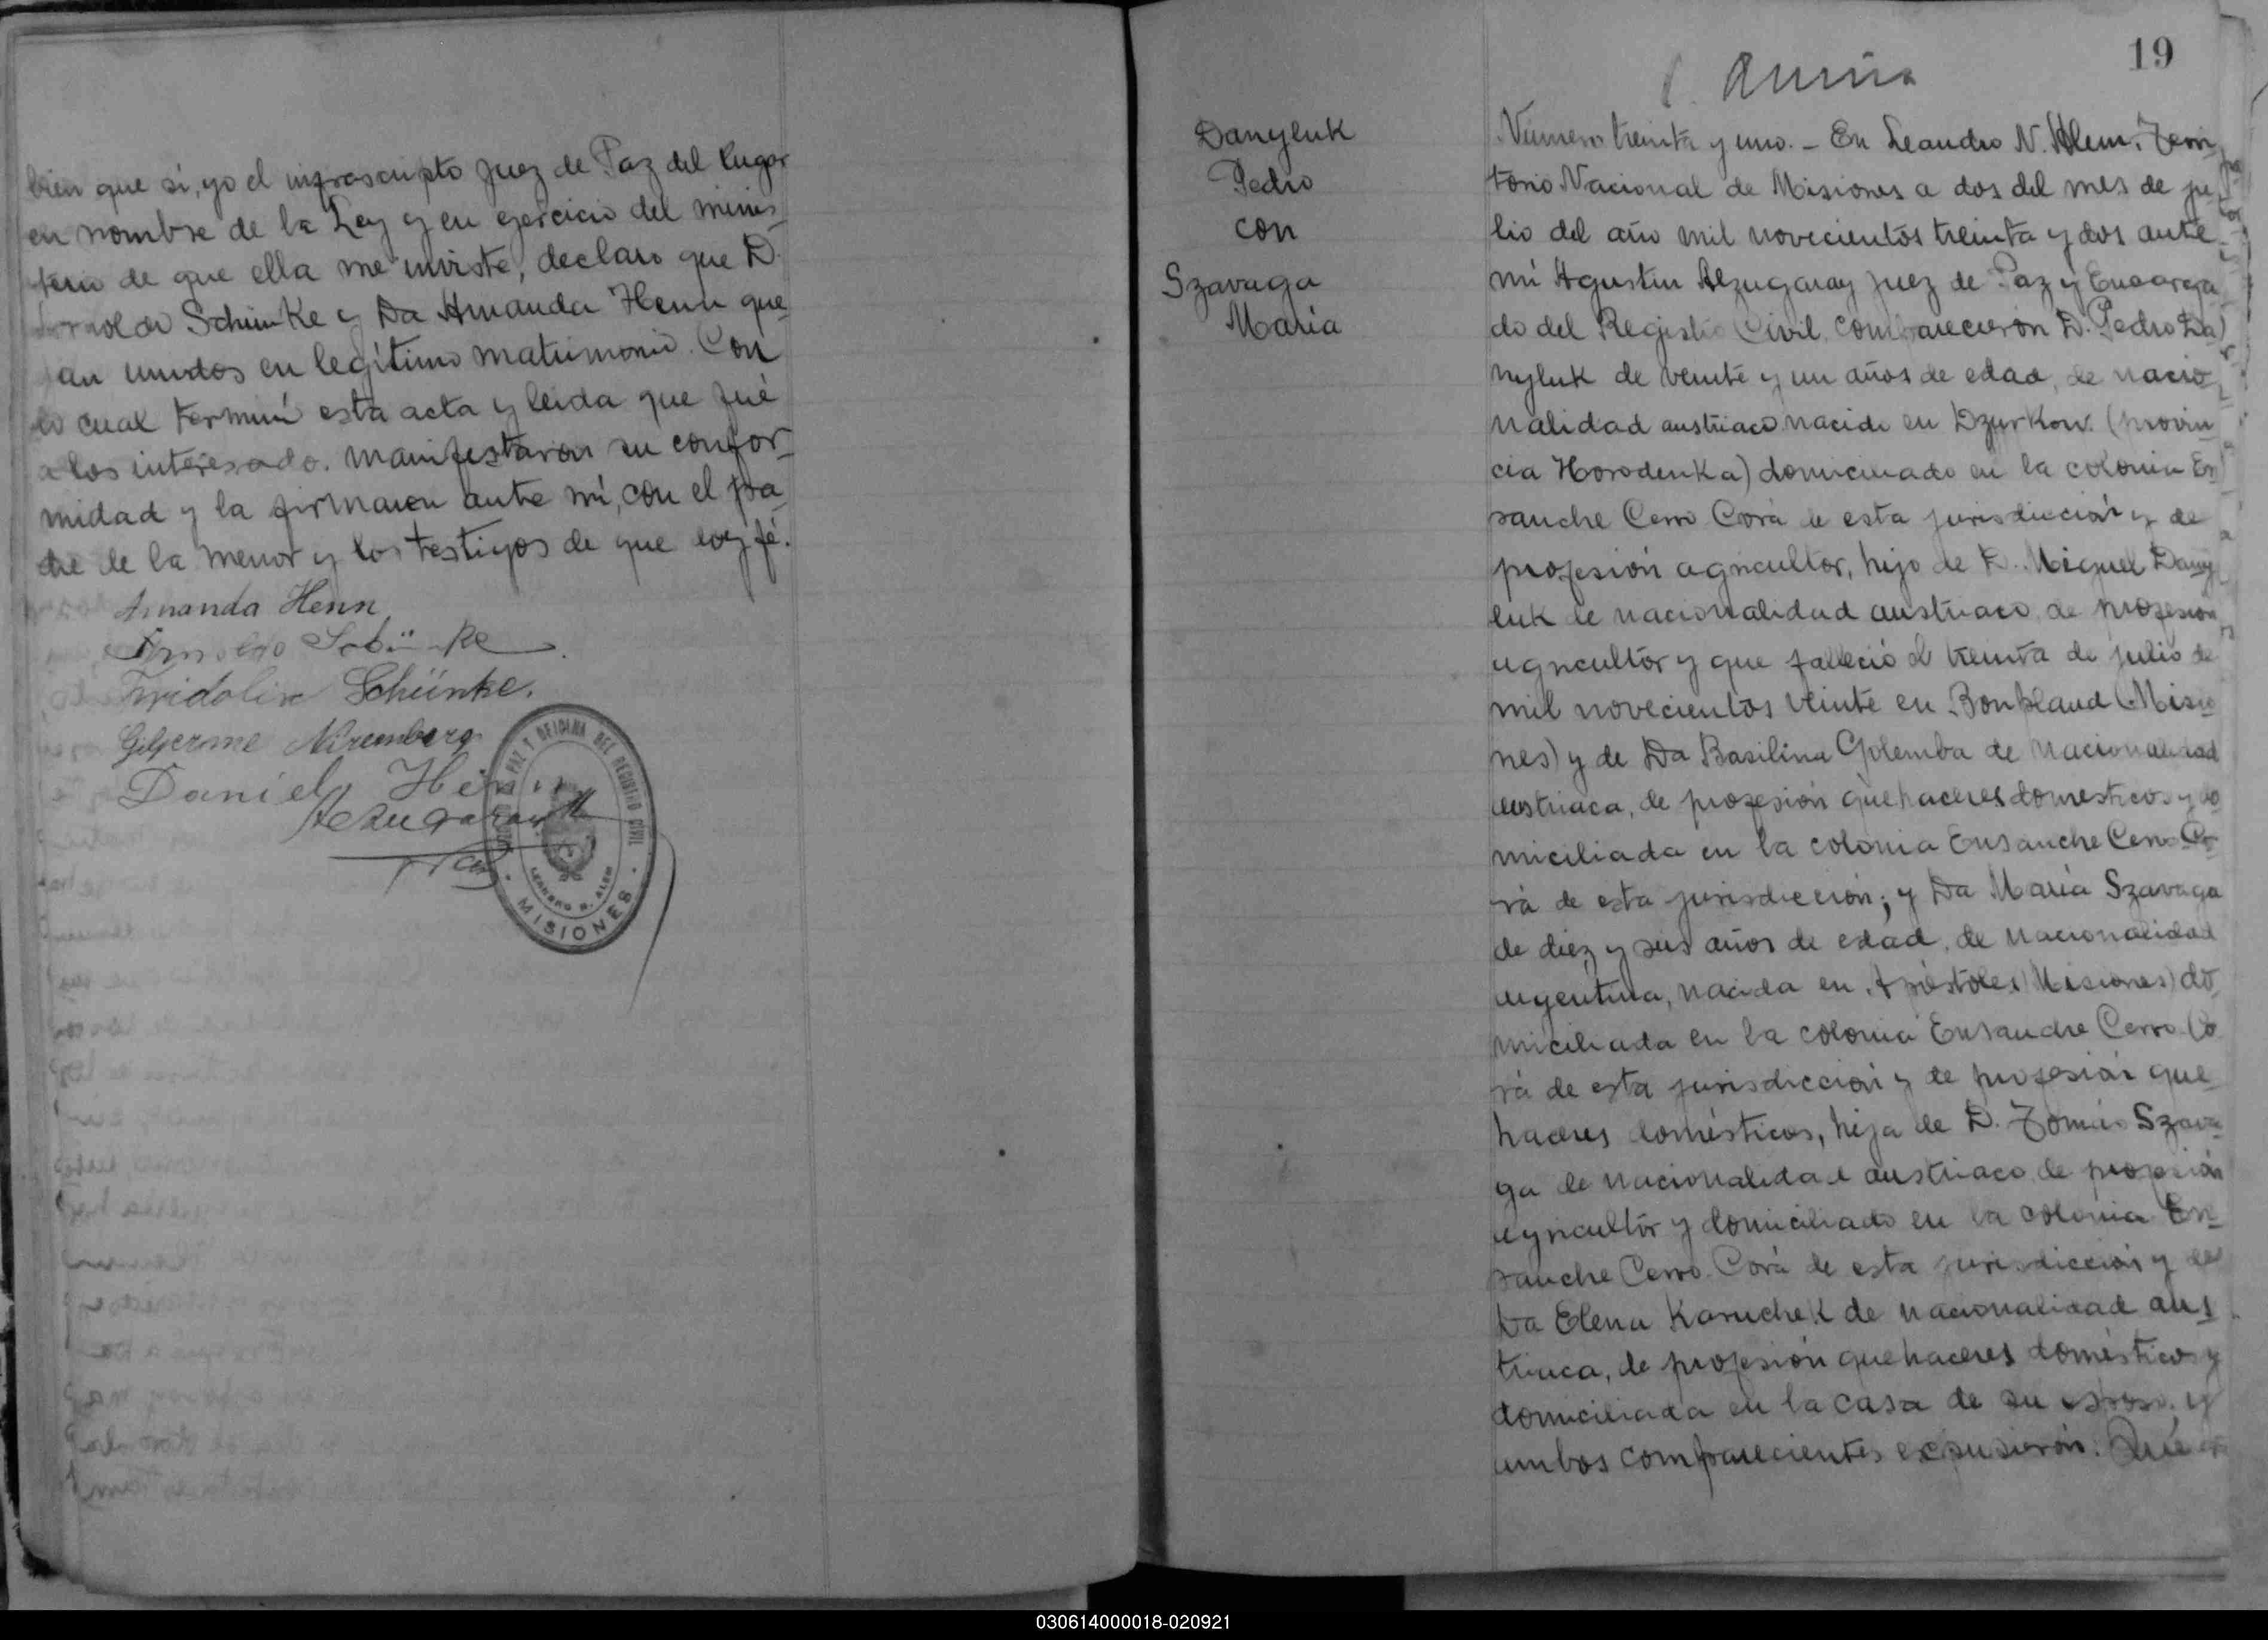 bien que sí, yo el infrascripto Juez de Paz del lugar
en nombre de la Ley y en ejercicio del minis-
terio de que ella me inviste, declaro que D.
Arnoldo Schünke y Da Amanda Henn que-
dan unidos en legítimo matrimonio. Con
lo cual terminó esta acta y leida que fué
a los interesado. manifestaron su confor-
midad y la firmaron ante mí, con el pa-
dre de la menor y los testigos de que doy fé.
Amanda Henn
Arnoldo Schünke
Fridolin Schünke.
Gilgerme Niremberg
Daniel Henn
Alzugaray
JUZGADO DE PAZ Y OFICINA DEL REGISTRO CIVIL
LEANDRO N. ALEM
- MISIONES -
19
Danyluk
Pedro
con
Szavaga
María
Número treinta y uno. - En Leandro N. Alem, Terri-
torio Nacional de Misiones a dos del mes de ju-
lio del año mil novecientos treinta y dos ante
mí Agustin Alzugaray Juez de Paz y Encarga-
do del Registro Civil, comparecieron D. Pedro Da-
nyluk de veinte y un años de edad, de nacio-
nalidad austriaco nacido en Dzurkow (provin-
cia Horodenka) domiciliado en la colonia En-
sanche Cerro Corá de esta jurisdicción y de
profesión agricultor, hijo de D. Miguel Dany-
luk de nacionalidad austriaco, de profesión
agricultor y que falleció el treinta de julio de
mil novecientos veinte en Bonpland (Misio-
nes) y de Da Basilina Golemba de nacionalidad
austriaca, de profesión quehaceres domesticos y do-
miciliada en la colonia Ensanche Cerro Co-
rá de esta jurisdicción; y Da María Szavaga
de diez y seis años de edad, de nacionalidad
argentina, nacida en Apóstoles (Misiones) do-
miciliada en la colonia Ensanche Cerro Co-
rá de esta jurisdicción y de profesión que-
haceres domésticos, hija de D. Tomás Szava-
ga de nacionalidad austriaco de profesión
agricultor y domiciliado en la colonia En-
sanche Cerro Corá de esta jurisdicción y de
Da Elena Karuchek de nacionalidad aus-
triaca, de profesión quehaceres domésticos y
domiciliada en la casa de su esposo. y
ambos comparecientes expusierón: Que
030614000018-020921